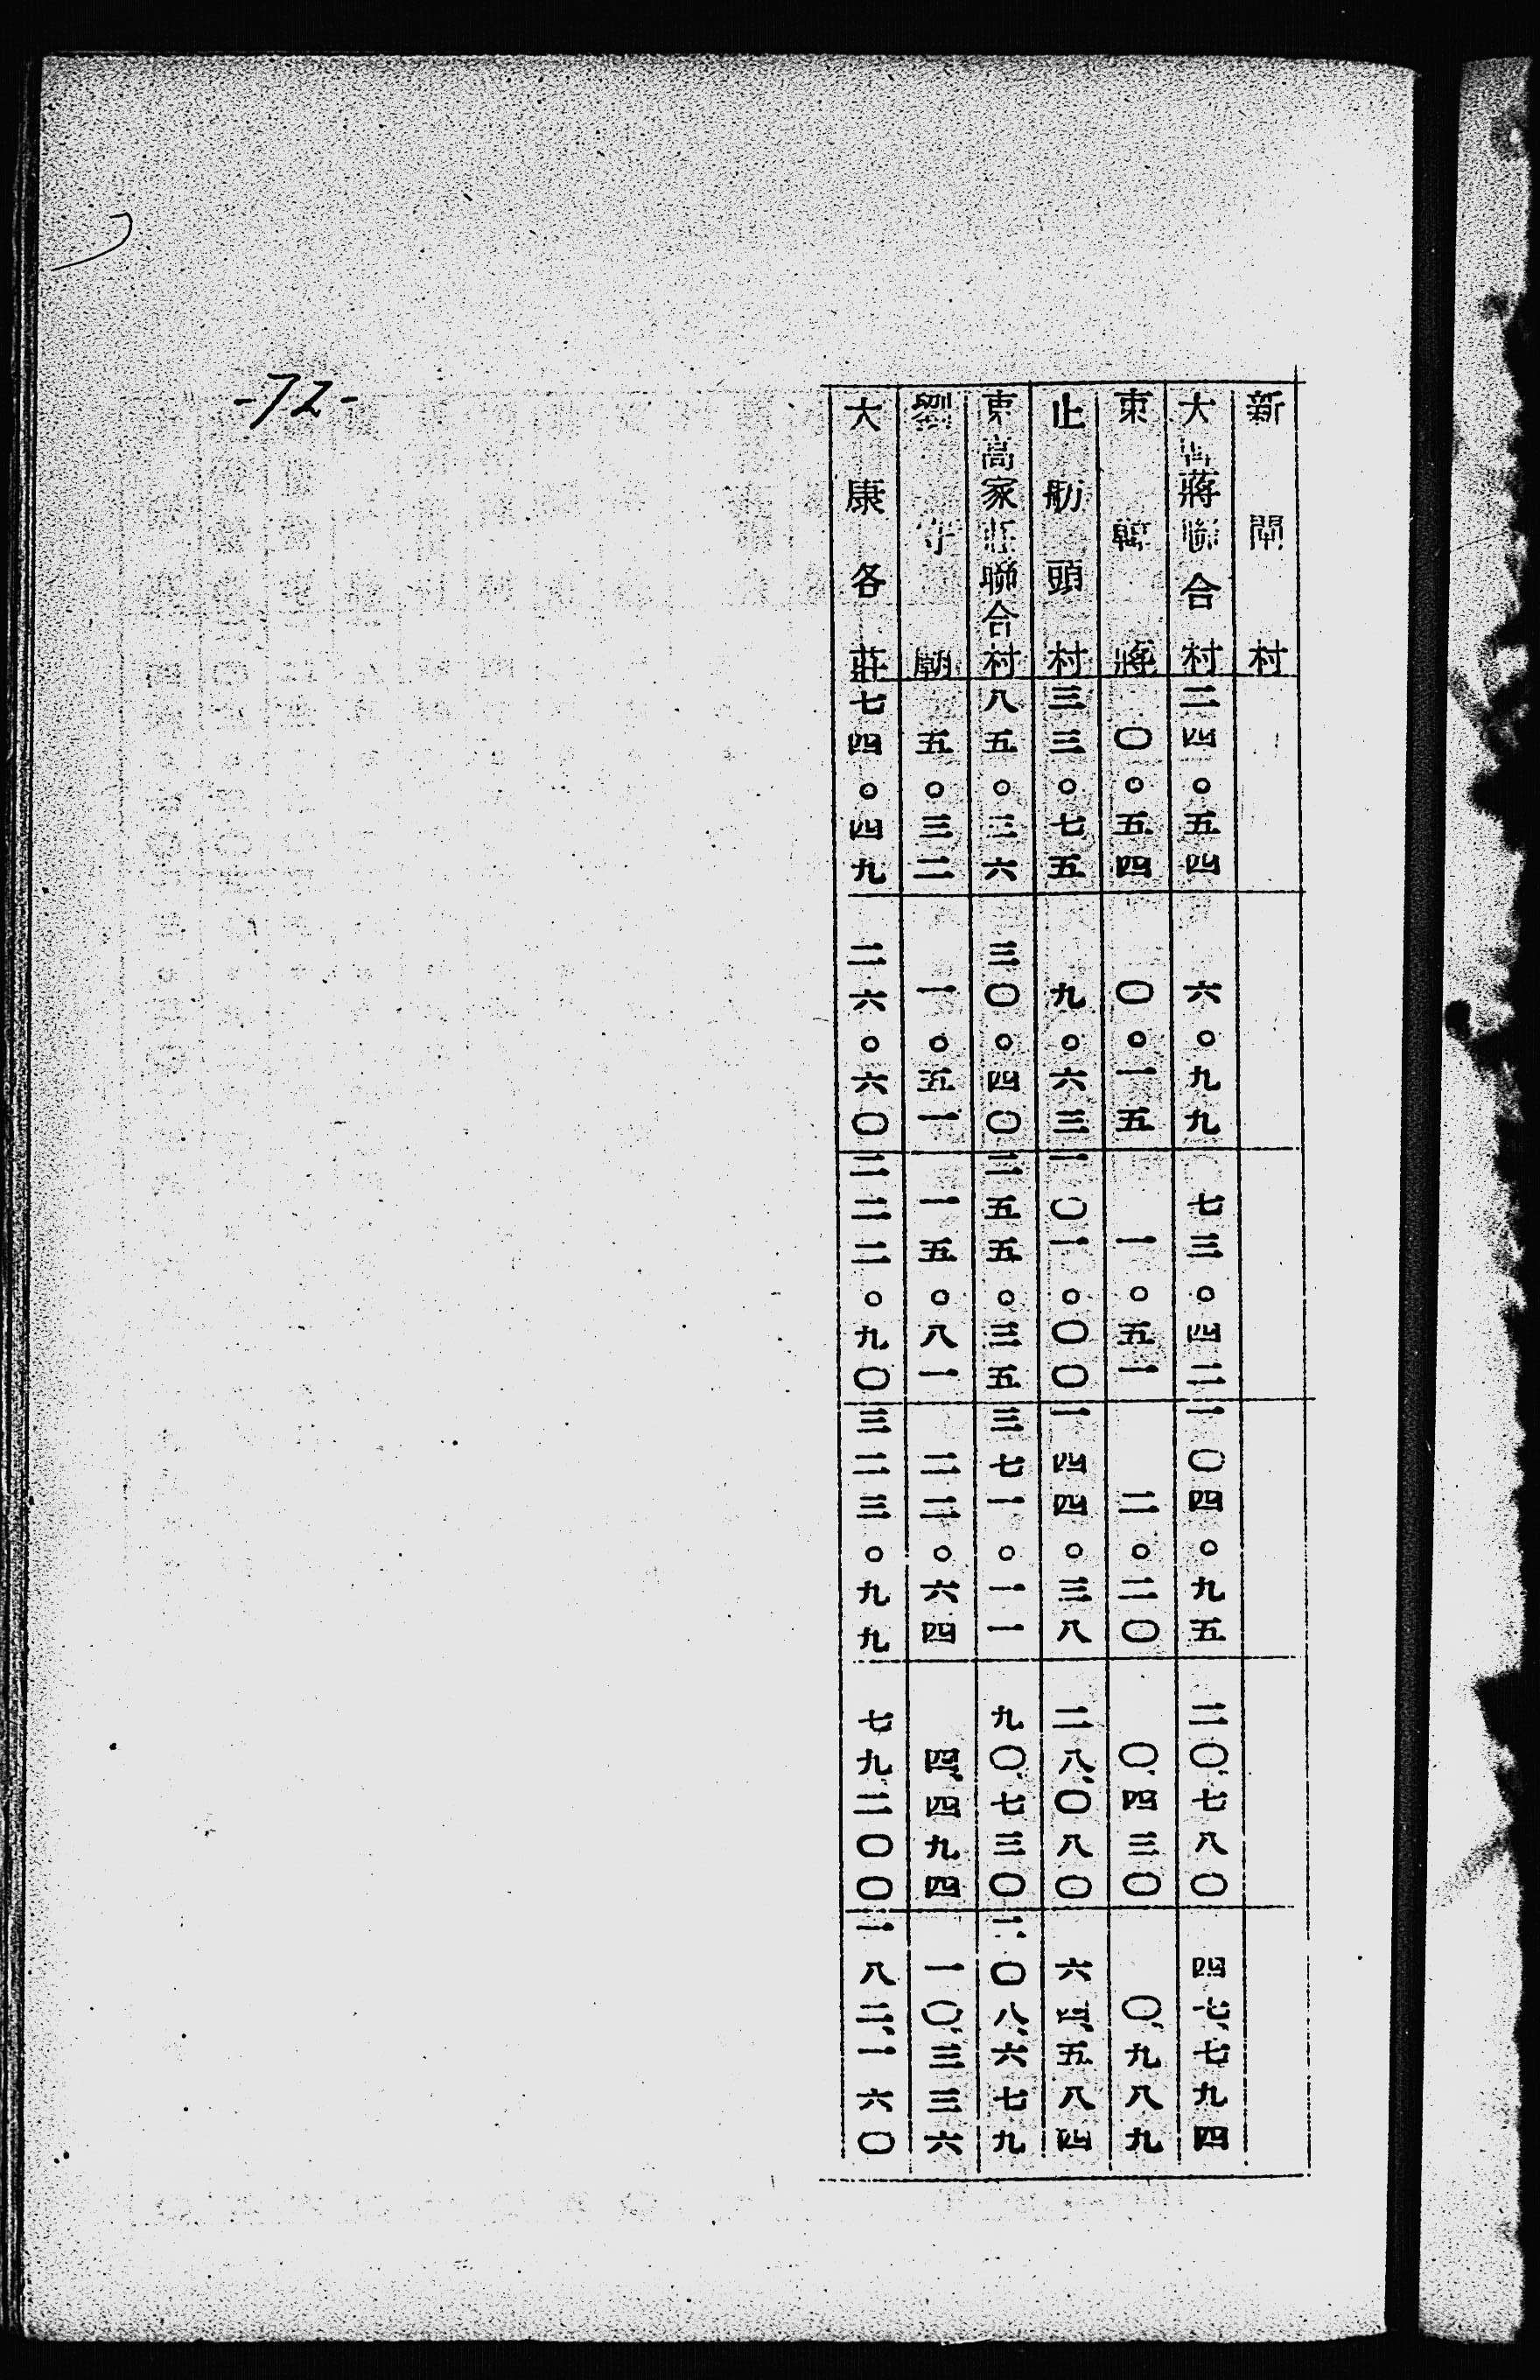 新開村
大蔣合村 二四。五四 六。九九 七三。四二 一〇四。九五 二〇、七八〇 四七、七九四
東韓蔣 〇。五四 〇。一五 一。五一 二。二〇 〇、四三〇 〇、九八九
止舫頭村 三三。七五 九。六三 一〇一。〇〇 一四四。三八 二八、〇八〇 六四、五八四
東高家莊聯合村 八五。三六 三〇。四〇 二五五。三五 三七一。一一 九〇、七三〇 二〇八、六七九
劉守廟 五。三二 一。五一 一五。八一 二二。六四 四、四九四 一〇、三三六
大康各莊 七四。四九 二六。六〇 二二二。九〇 三二三。九九 七九二〇〇 一八二、一六〇
-72-